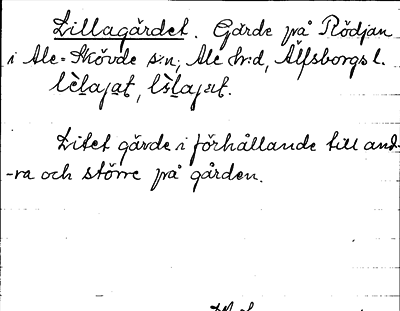 Lillagärdet. Gärde på Rödjan
i Ale-Skövde s:n, Ale h:d, Älfsborgs l.
Litet gärde i förhållande till and-
-ra och större på gården.